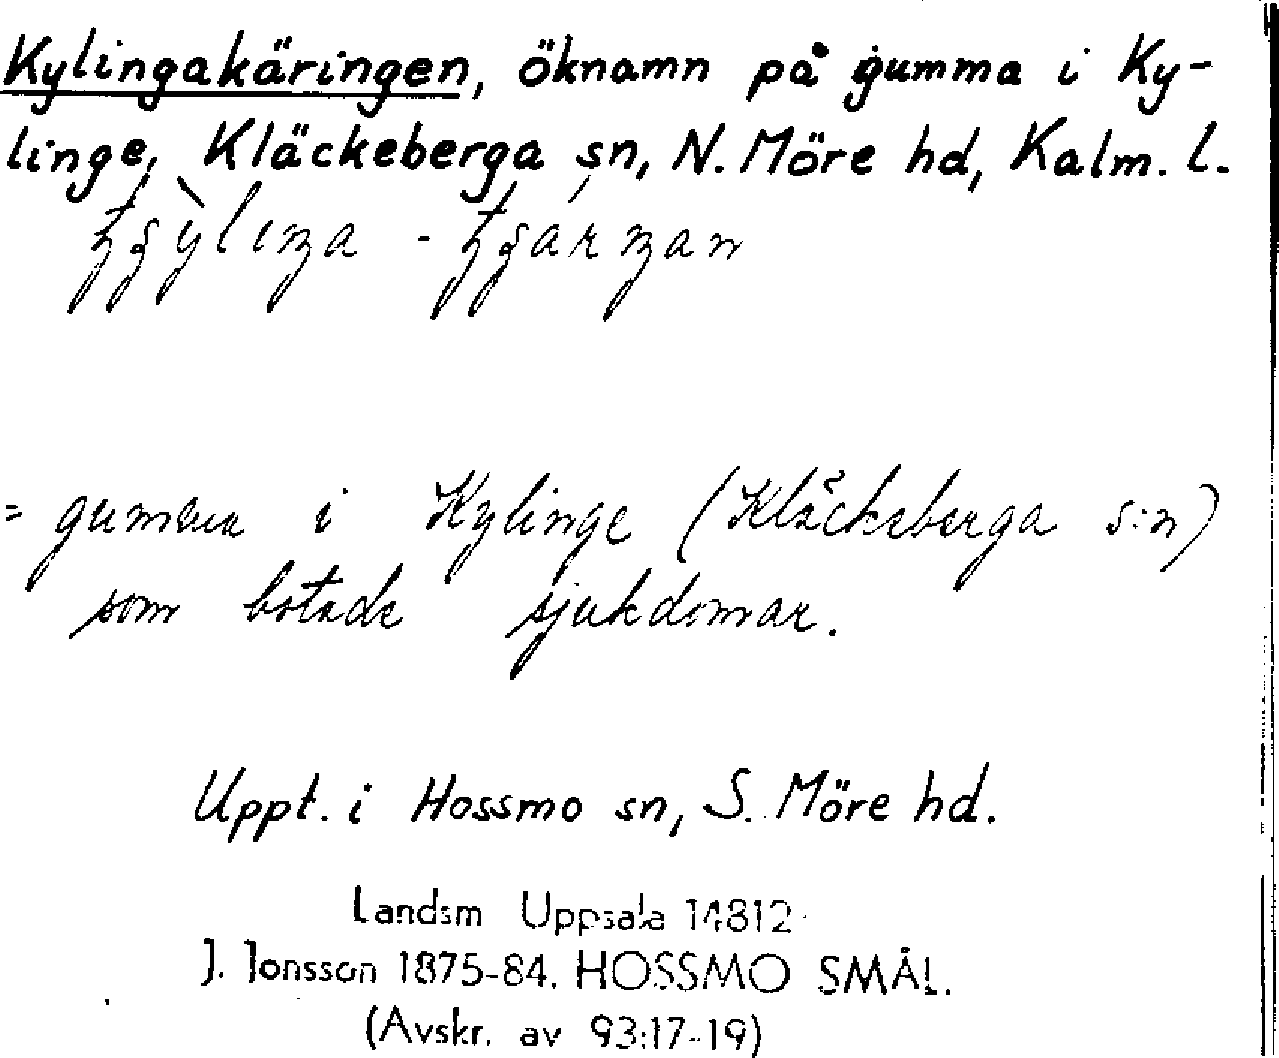 Kylingakäringen, öknamn på gumma i Ky-
linge, Kläckeberga sn, N. Möre hd, Kalm. l.
= gumma i Kylinge (Kläckeberga s:n)
som botade sjukdomar.
Uppt. i Hossmo sn, S. Möre hd.
Landsm Uppsala 14812
J. Jonsson 1875-84. HOSSMO SMÅL.
(Avskr. av 93:17-19)